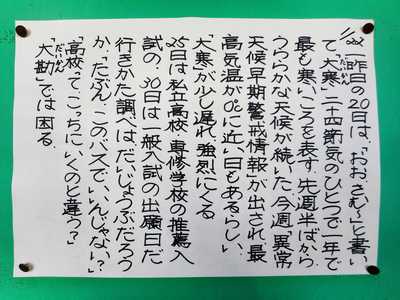 1/22 一昨日の20日は、「おおさむ〜」と書い
て"大寒(だいかん)" 二十四節気のひとつで一年で
最も寒いころを表す. 先週半ばから
うららかな天候が続いた. 今週「異常
天候早期警戒情報」が出され最
高気温が0℃に近い日もあるらしい.
"大寒"が少し遅れ強烈にくる
25日は私立高校、専修学校の推薦入
試の、30日は一般入試の出願日だ
行きかた調べは、だいじょうぶだろう
か. 「たぶん、このバスで、いいんじゃない?」
「高校って、こっちにいくのと違う?」
"大勘(だいかん)"では困る.